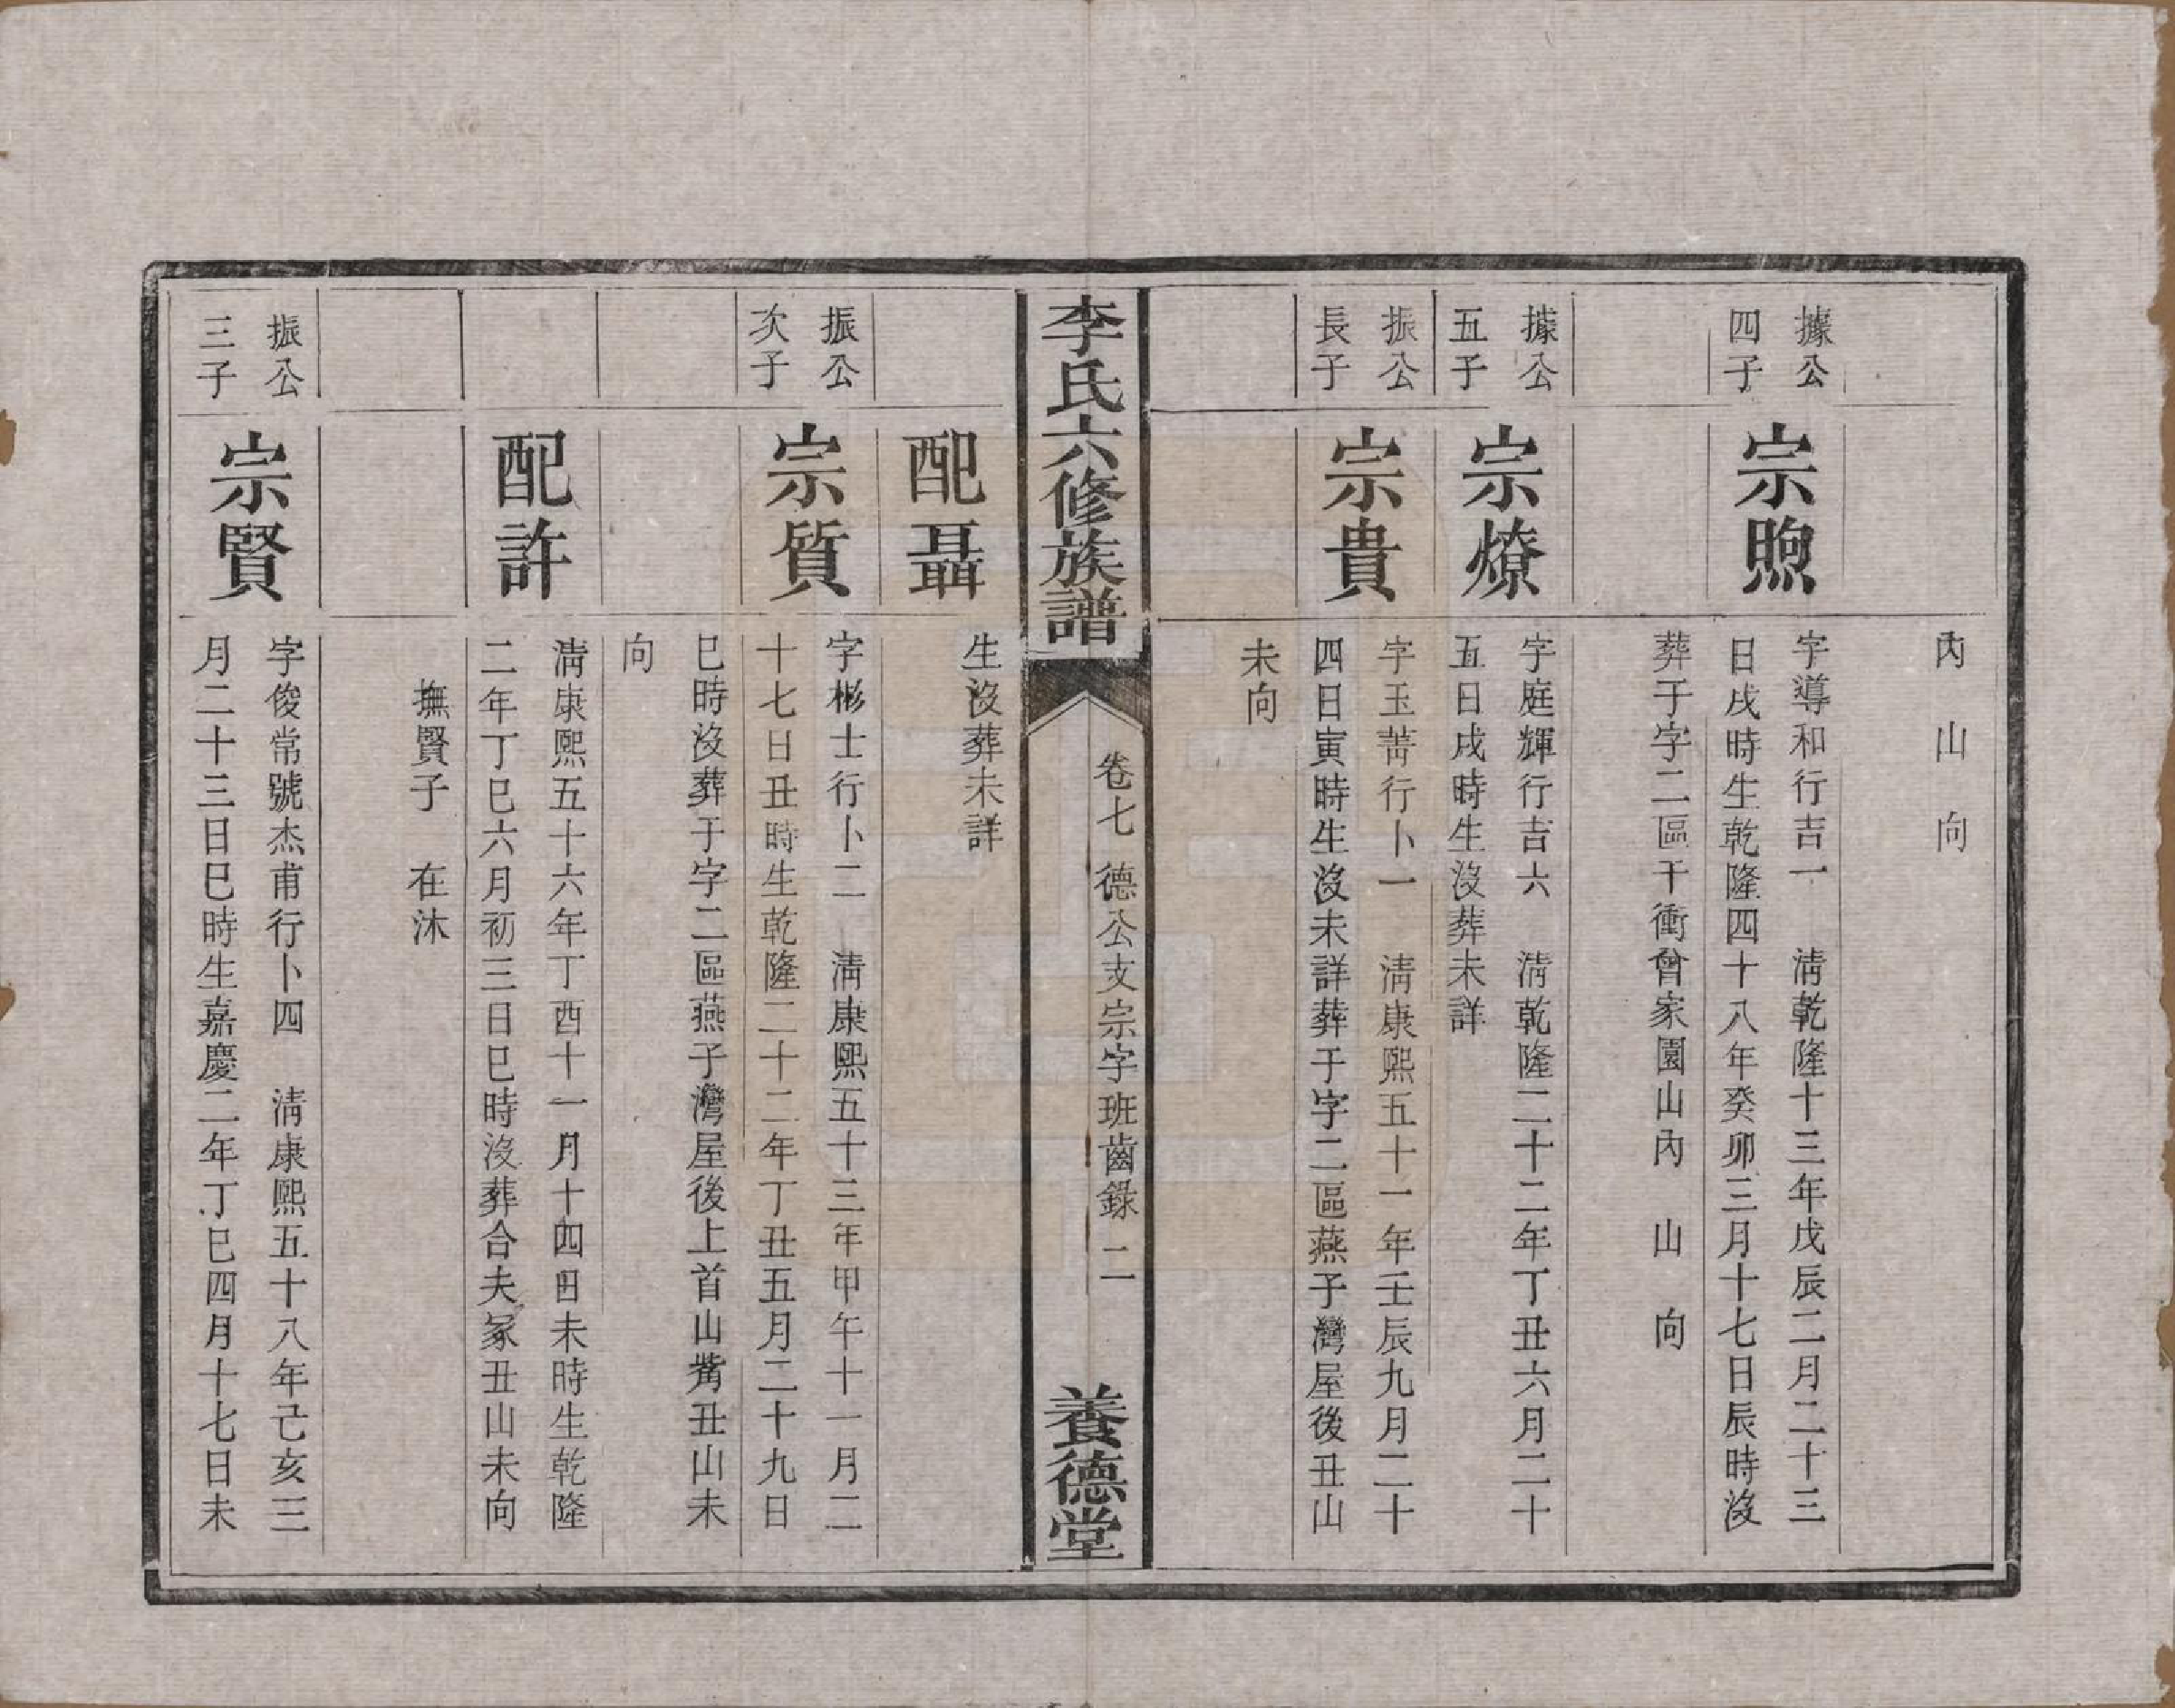 內　山　向
據公
四子
宗煦
字導和行吉一　淸乾隆十三年戊辰二月二十三
日戌時生乾隆四十八年癸卯三月十七日辰時沒
葬于字二區干衝曾家園山內　山　向
據公
五子
宗燎
字庭輝行吉六　淸乾隆二十二年丁丑六月二十
五日戌時生沒葬未詳
振公
長子
宗貴
字玉菁行卜一　淸康熙五十一年壬辰九月二十
四日寅時生沒未詳葬于字二區燕子灣屋後丑山
未向
李氏六修族譜
卷七　德公支宗字班齒錄　二
養德堂
配聶
生沒葬未詳
振公
次子
宗質
字彬士行卜二　淸康熙五十三年甲午十一月二
十七日丑時生乾隆二十二年丁丑五月二十九日
巳時沒葬于字二區燕子灣屋後上首山觜丑山未
向
配許
淸康熙五十六年丁酉十一月十四日未時生乾隆
二年丁巳六月初三日巳時沒葬合夫冢丑山未向
撫賢子　在沐
振公
三子
宗賢
字俊常號杰甫行卜四　淸康熙五十八年己亥三
月二十三日巳時生嘉慶二年丁巳四月十七日未